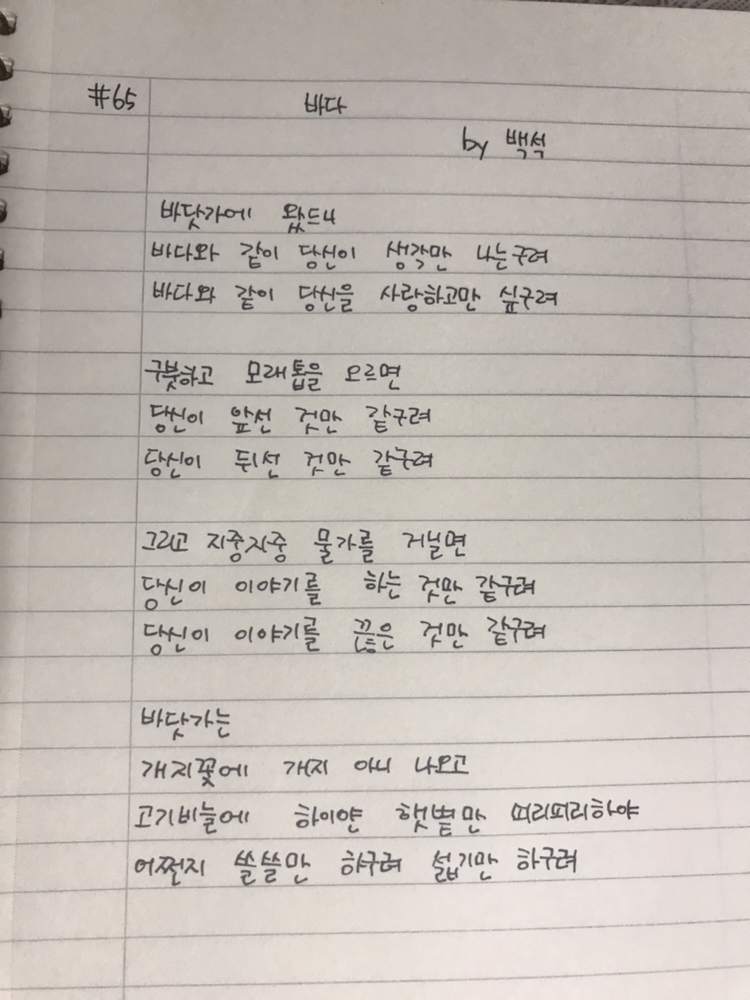 #65 바다
by 백석
바닷가에 왔드니
바다와 같이 당신이 생각만 나는구려
바다와 같이 당신을 사랑하고만 싶구려
구붓하고 모래톱을 오르면
당신이 앞선 것만 같구려
당신이 뒤선 것만 같구려
그리고 지중지중 물가를 거닐면
당신이 이야기를 하는 것만 같구려
당신이 이야기를 끊은 것만 같구려
바닷가는
개지꽃에 개지 아니 나오고
고기비늘에 하이얀 햇볕만 쇠리쇠리하야
어쩐지 쓸쓸만 하구려 섧기만 하구려